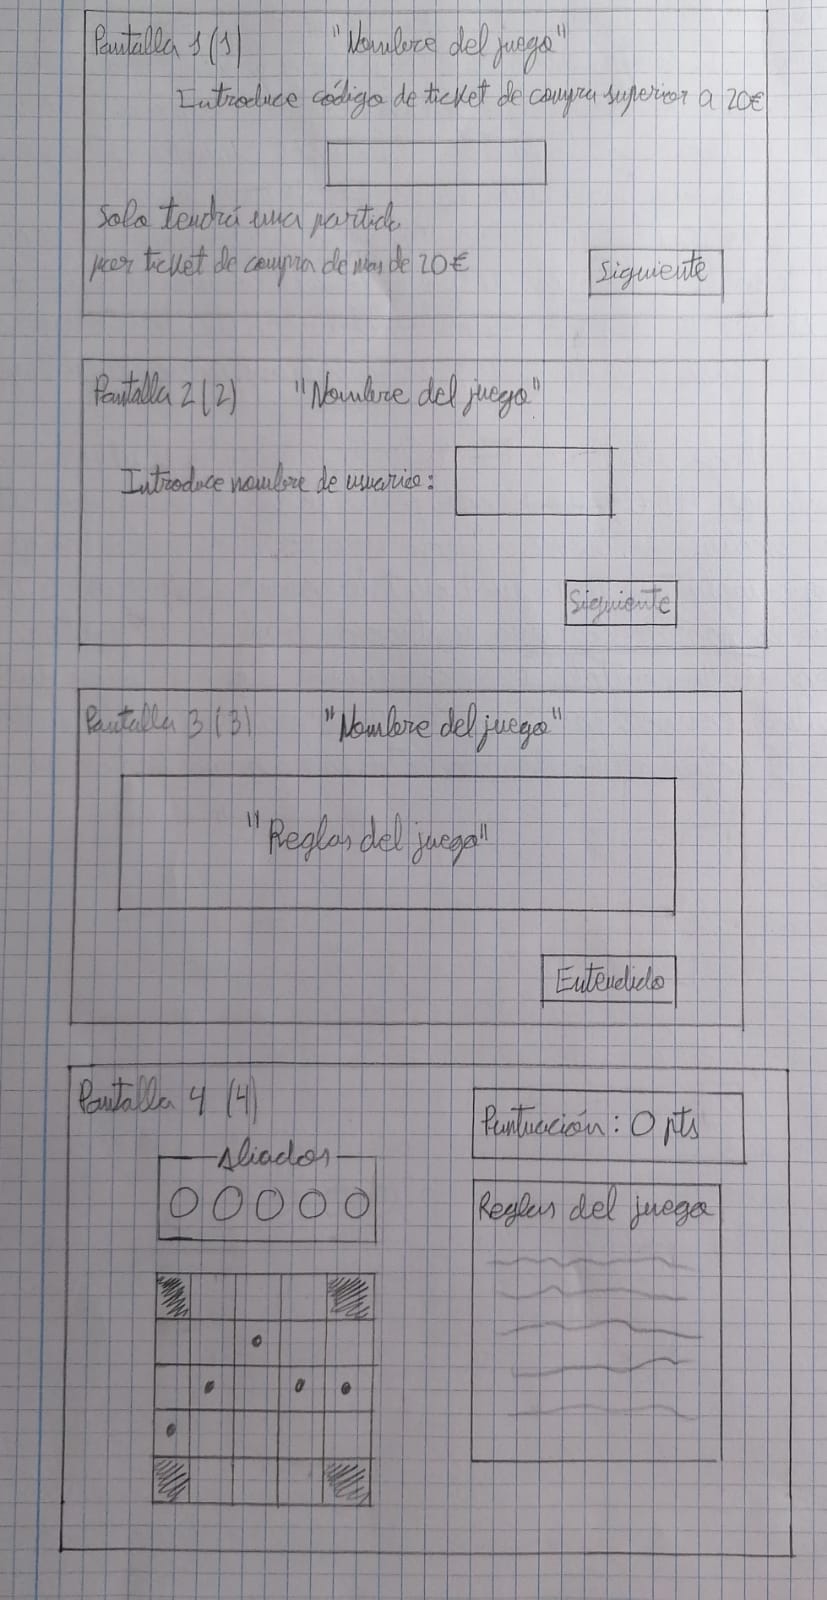 Pantalla 1 (1) "Nombre del juego"
Introduce código de ticket de compra superior a 20€
Solo tendrá una partida
por ticket de compra de mas de 20€
Siguiente
Pantalla 2 (2) "Nombre del juego"
Introduce nombre de usuario:
Siguiente
Pantalla 3 (3) "Nombre del juego"
"Reglas del juego"
Entendido
Pantalla 4 (4)
Puntuación: 0 pts
Aliados
Reglas del juego